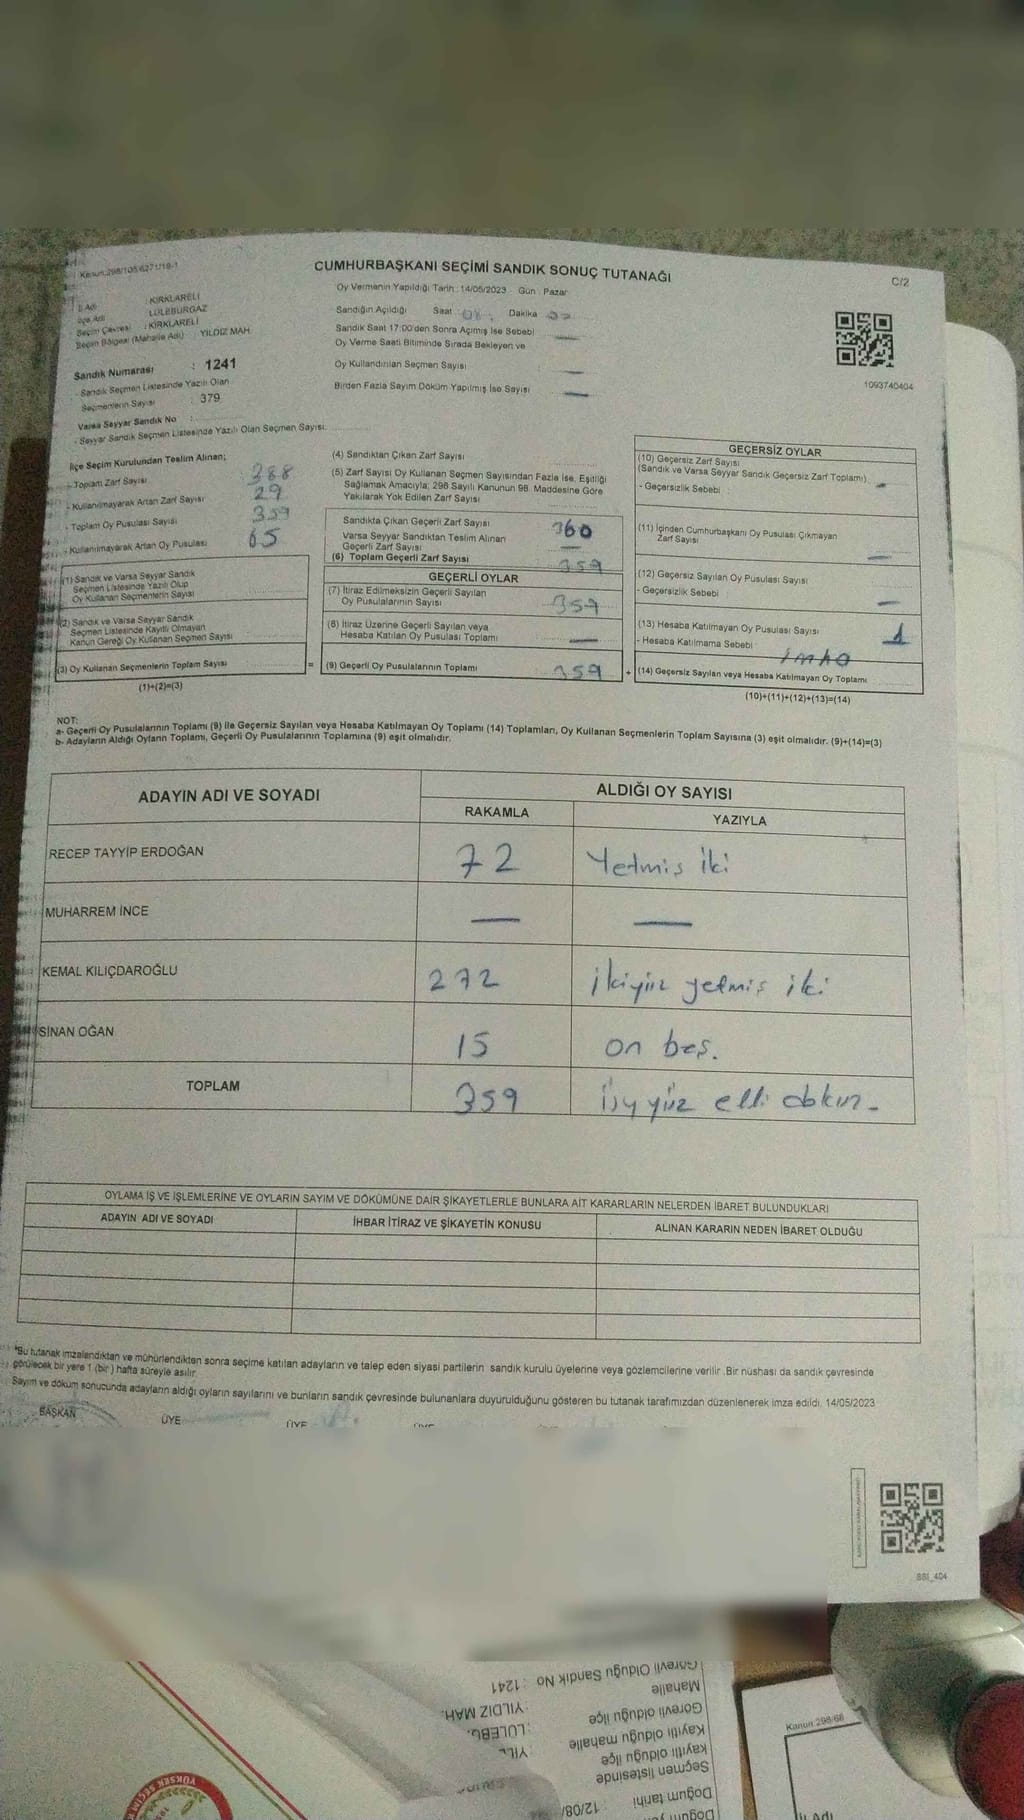 Kanun:298/105/6271/19-1
CUMHURBAŞKANI SEÇİMİ SANDIK SONUÇ TUTANAĞI
C/2
Oy Vermenin Yapıldığı Tarih : 14/05/2023 Gün : Pazar
İl Adı : KIRKLARELİ
İlçe Adı : LÜLEBURGAZ
Seçim Çevresi : KIRKLARELİ
Seçim Bölgesi (Mahalle Adı) : YILDIZ MAH.
Sandık Numarası : 1241
- Sandık Seçmen Listesinde Yazılı Olan
Seçmenlerin Sayısı : 379
Varsa Seyyar Sandık No :
- Seyyar Sandık Seçmen Listesinde Yazılı Olan Seçmen Sayısı:
Sandığın Açıldığı Saat Dakika
Sandık Saat 17:00'den Sonra Açımış İse Sebebi —
Oy Verme Saati Bitiminde Sırada Bekleyen ve
Oy Kullandırılan Seçmen Sayısı —
Birden Fazla Sayım Döküm Yapılmış İse Sayısı —
1093740404
İlçe Seçim Kurulundan Teslim Alınan;
- Toplam Zarf Sayısı 388
- Kullanılmayarak Artan Zarf Sayısı 29
- Toplam Oy Pusulası Sayısı 359
- Kullanılmayarak Artan Oy Pusulası 65
(1) Sandık ve Varsa Seyyar Sandık
Seçmen Listesinde Yazılı Olup
Oy Kullanan Seçmenlerin Sayısı
(2) Sandık ve Varsa Seyyar Sandık
Seçmen Listesinde Kayıtlı Olmayan
Kanun Gereği Oy Kullanan Seçmen Sayısı
(3) Oy Kullanan Seçmenlerin Toplam Sayısı
(1)+(2)=(3)
=
(4) Sandıktan Çıkan Zarf Sayısı
(5) Zarf Sayısı Oy Kullanan Seçmen Sayısından Fazla İse, Eşitliği
Sağlamak Amacıyla; 298 Sayılı Kanunun 98. Maddesine Göre
Yakılarak Yok Edilen Zarf Sayısı
Sandıkta Çıkan Geçerli Zarf Sayısı 360
Varsa Seyyar Sandıktan Teslim Alınan
Geçerli Zarf Sayısı —
(6) Toplam Geçerli Zarf Sayısı 359
GEÇERLİ OYLAR
(7) İtiraz Edilmeksizin Geçerli Sayılan
Oy Pusulalarının Sayısı 359
(8) İtiraz Üzerine Geçerli Sayılan veya
Hesaba Katılan Oy Pusulası Toplamı —
(9) Geçerli Oy Pusulalarının Toplamı 359
+
GEÇERSİZ OYLAR
(10) Geçersiz Zarf Sayısı
(Sandık ve Varsa Seyyar Sandık Geçersiz Zarf Toplamı) —
- Geçersizlik Sebebi :
(11) İçinden Cumhurbaşkanı Oy Pusulası Çıkmayan
Zarf Sayısı —
(12) Geçersiz Sayılan Oy Pusulası Sayısı
- Geçersizlik Sebebi : —
(13) Hesaba Katılmayan Oy Pusulası Sayısı 1
- Hesaba Katılmama Sebebi : imha
(14) Geçersiz Sayılan veya Hesaba Katılmayan Oy Toplamı
(10)+(11)+(12)+(13)=(14)
NOT:
a- Geçerli Oy Pusulalarının Toplamı (9) İle Geçersiz Sayılan veya Hesaba Katılmayan Oy Toplamı (14) Toplamları, Oy Kullanan Seçmenlerin Toplam Sayısına (3) eşit olmalıdır. (9)+(14)=(3)
b- Adayların Aldığı Oyların Toplamı, Geçerli Oy Pusulalarının Toplamına (9) eşit olmalıdır.
ADAYIN ADI VE SOYADI
ALDIĞI OY SAYISI
RAKAMLA YAZIYLA
RECEP TAYYİP ERDOĞAN 72 Yetmiş iki
MUHARREM İNCE — —
KEMAL KILIÇDAROĞLU 272 ikiyüz yetmiş iki
SİNAN OĞAN 15 on beş.
TOPLAM 359 üçyüz elli dokuz
OYLAMA İŞ VE İŞLEMLERİNE VE OYLARIN SAYIM VE DÖKÜMÜNE DAİR ŞİKAYETLERLE BUNLARA AİT KARARLARIN NELERDEN İBARET BULUNDUKLARI
ADAYIN ADI VE SOYADI İHBAR İTİRAZ VE ŞİKAYETİN KONUSU ALINAN KARARIN NEDEN İBARET OLDUĞU
*Bu tutanak imzalandıktan ve mühürlendikten sonra seçime katılan adayların ve talep eden siyasi partilerin sandık kurulu üyelerine veya gözlemcilerine verilir. Bir nüshası da sandık çevresinde
görülecek bir yere 1 (bir ) hafta süreyle asılır.
Sayım ve döküm sonucunda adayların aldığı oyların sayılarını ve bunların sandık çevresinde bulunanlara duyurulduğunu gösteren bu tutanak tarafımızdan düzenlenerek imza edildi. 14/05/2023
BAŞKAN ÜYE ÜYE ÜYE
SSI_404
Kanun 298/68
Doğum tarihi : 12/08/
Seçmen listesinde
kayıtlı olduğu ilçe
Kayıtlı olduğu mahalle
Görevli olduğu ilçe : LÜLEBU
Mahalle : YILDIZ MAH.
Görevli Olduğu Sandık No : 1241